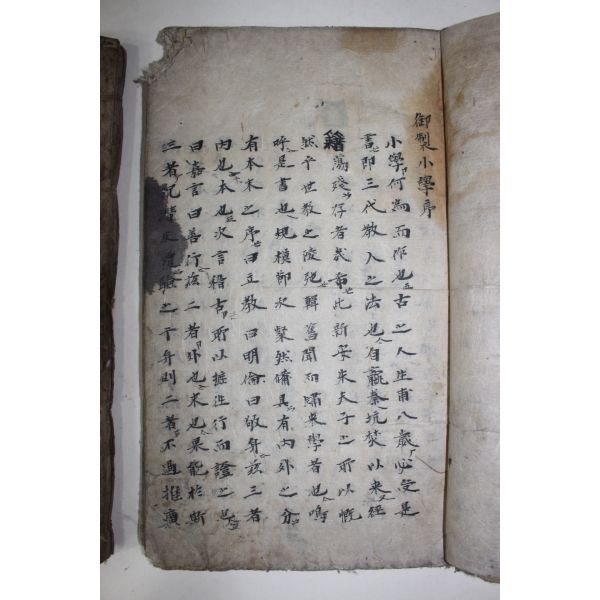 御製小學序
小學何為而作也古之人生甫八歲必受是
書即三代教人之法也自嬴秦坑焚以來經
籍蕩殘存者幾希此新安朱夫子之所以慨
然乎世教之陵弛輯舊聞而牖來學者也嗚
呼是書也規模節次粲然備具有內外之分
有本末之序曰立教曰明倫曰敬身玆三者
內也本也次言稽古所以摭往行而證之也
曰嘉言曰善行玆二者外也末也果能於斯
三者驗之于身則二者不過推廣